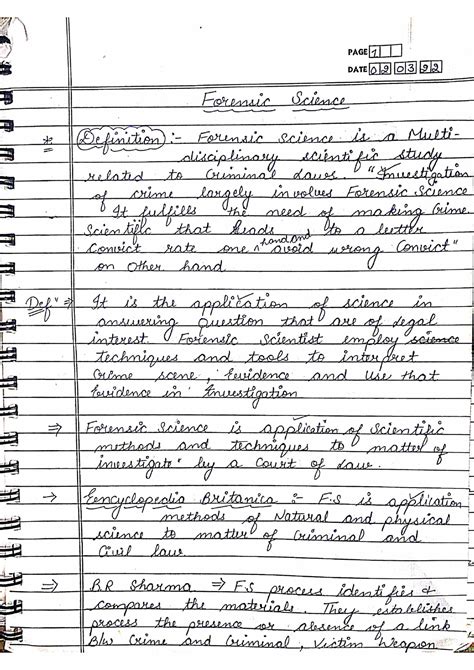 PAGE 1
DATE 02 03 22
Forensic Science
* Definition :- Forensic Science is a Multi-
disciplinary scientific study
related to Criminal Laws. "Investigation
of crime largely involves Forensic Science
It fulfills the need of making Crime
Scientific that leads to a better
Convict rate one hand and avoid wrong Convict"
on Other hand
Defⁿ ⇒ It is the application of science in
answering question that are of legal
interest. Forensic Scientist employ science
techniques and tools to interpret
Crime scene, Evidence and Use that
Evidence in Investigation
⇒ Forensic Science is application of Scientific
methods and techniques to matter of
investigatⁿ by a Court of Law.
→ Eencyclopedia Britanica :- F.S is application
methods of Natural and physical
science to matter of Criminal and
Civil law.
⇒ B.R Sharma ⇒ F.S process identifies &
compares the materials. They establishes
process the presence or absence of a link
B/w Crime and Criminal, Victim Weapon